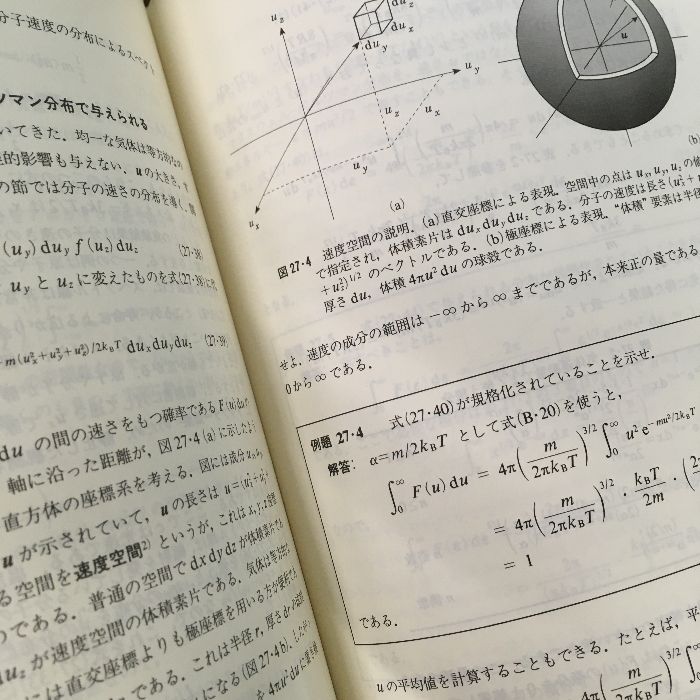 分子速度の分布によるスペクト
ツマン分布で与えられる
いてきた．均一な気体は等方的なの
的影響も与えない．uの大きさ，す
の節では分子の速さの分布を導く．
(u_y) du_y f(u_z) du_z (27・38)
u_y と u_z に変えたものを式(27・38)に代
−m(u_x²+u_y²+u_z²)/2k_BT du_x du_y du_z (27・39)
du の間の速さをもつ確率である F(u)du
軸に沿った距離が，図27・4(a)に示したよう
直方体の座標系を考える．図には成分 u_x, u_y,
u が示されていて，u の長さは u=(u_x²+u_y²+
る空間を速度空間²⁾というが，これは x, y, z 座標
のである．普通の空間で dx dy dz が体積素片である
du_z が速度空間の体積素片である．気体は等方的
には直交座標よりも極座標を用いる方が
である．これは半径 r，厚さ dr の
になる（図27・4b）．したがって
を 4πu²du に置き換
u_z
du_z
du_x
du_y
u_y
u_z
u_x
u_y
u_x
(a)
u
(b)
図27・4 速度空間の説明．(a)直交座標による表現．空間中の点は u_x, u_y, u_z の値
で指定され，体積素片は du_x du_y du_z である．分子の速度は長さ (u_x²+
+u_z²)^{1/2} のベクトルである．(b)極座標による表現．“体積”要素は半径
厚さ du，体積 4πu²du の球殻である．
せよ．速度の成分の範囲は −∞ から ∞ までであるが，本来正の量である
0から∞である．
例題 27・4 式(27・40)が規格化されていることを示せ．
解答： α=m/2k_BT として式(B・20)を使うと，
∫₀^∞ F(u) du = 4π(m/2πk_BT)^{3/2} ∫₀^∞ u² e^{−mu²/2k_BT}
= 4π(m/2πk_BT)^{3/2} · k_BT/2m · (2
= 1
である．
uの平均値を計算することもできる．たとえば，平
= 4π(m/2πk_BT)^{3/2} ∫₀^∞